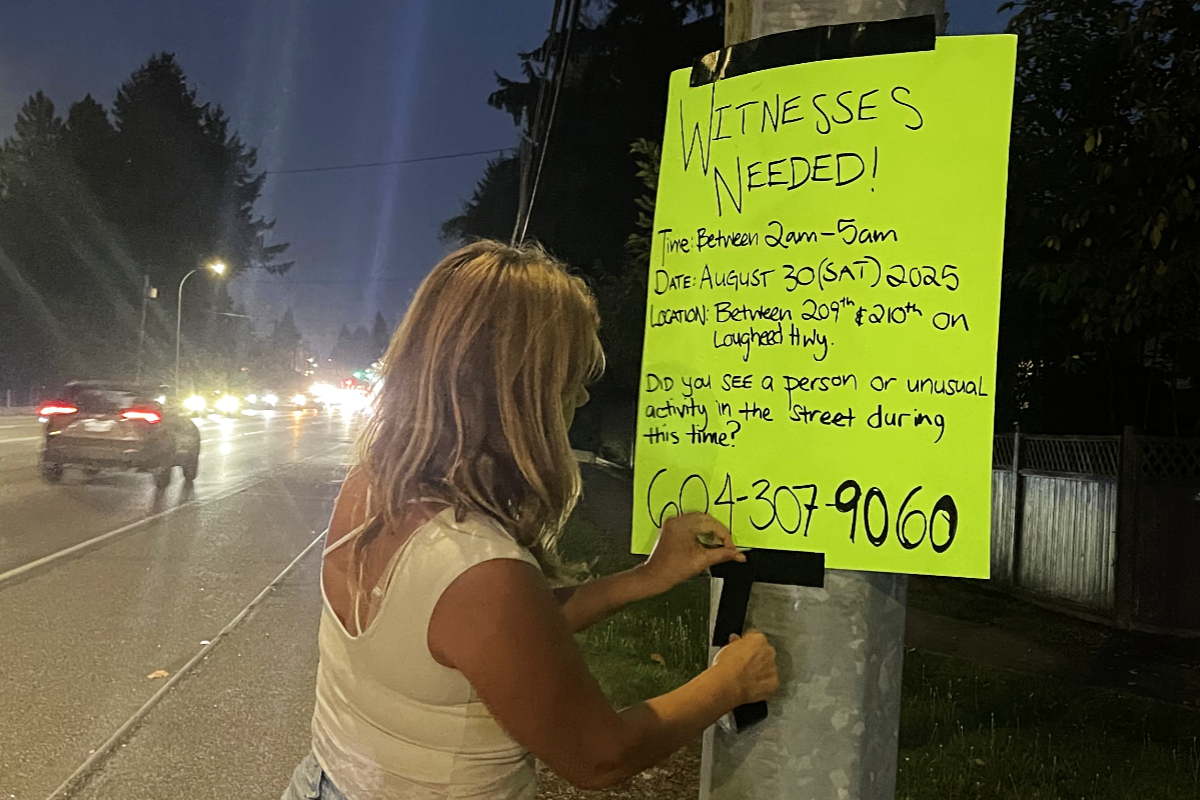 WITNESSES
NEEDED!
Time: Between 2am-5am
DATE: AUGUST 30 (SAT) 2025
LOCATION: Between 209th & 210th on
Lougheed Hwy.
DID you SEE a person or unusual
activity in the street during
this time?
604-307-9060